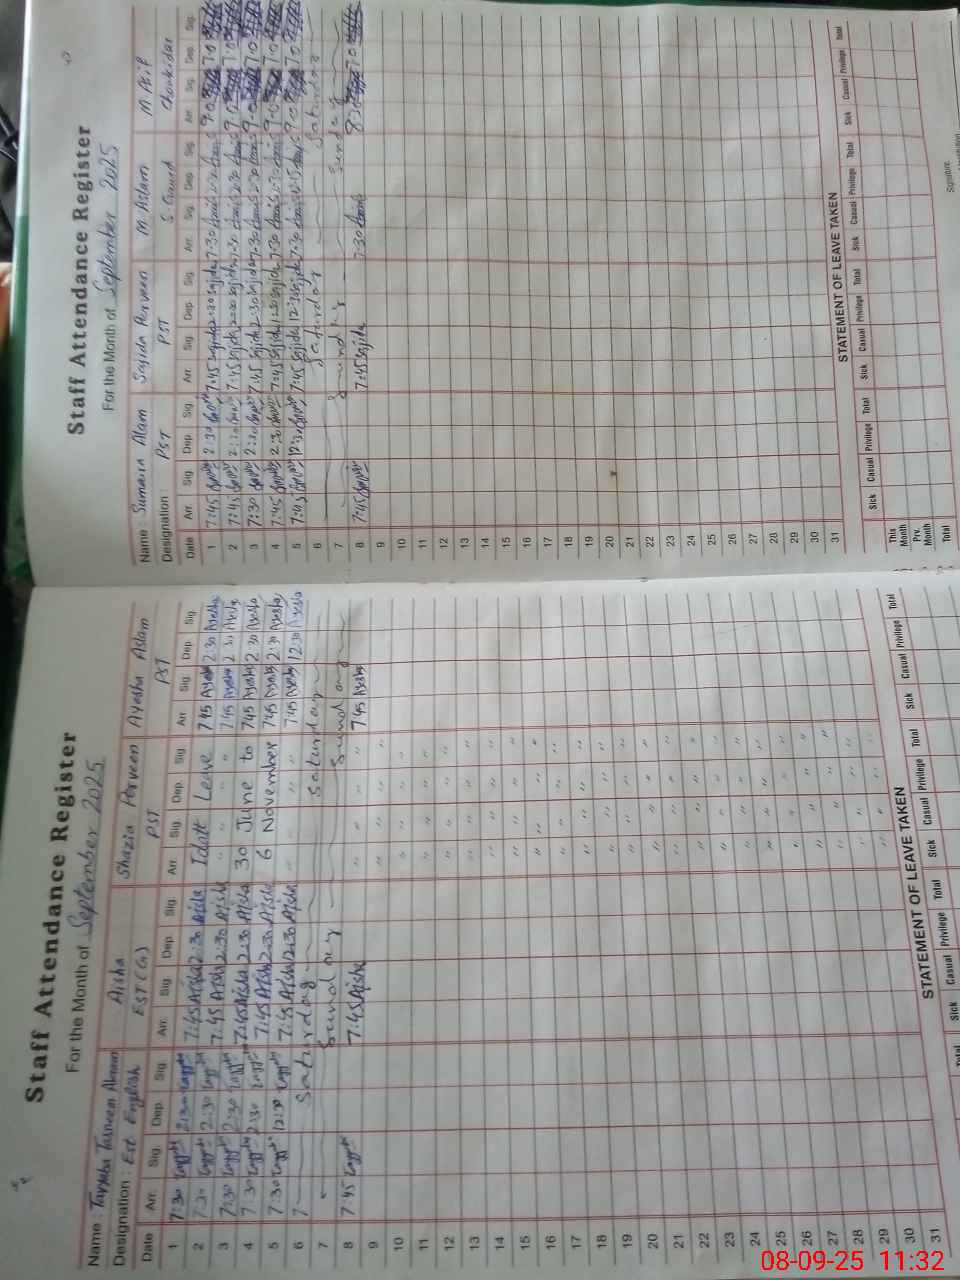 Staff Attendance Register
For the Month of September 2025
Name : Tayyaba Tasneem Alam Aisha Shazia Parveen Ayesha Aslam
Designation : Est English EST (G) PST PST
Date Arr. Sig. Dep. Sig. Arr. Sig. Dep. Sig. Arr. Sig. Dep. Sig. Arr. Sig. Dep. Sig.
1 7:30 2:30 7:45 Aisha 2:30 Aisha Iddat Leave 7:45 Ayesha 2:30 Ayesha
2 7:30 2:30 7:45 Aisha 2:30 Aisha " " 7:45 Ayesha 2:30 Ayesha
3 7:30 2:30 7:45 Aisha 2:30 Aisha 30 June to 745 Ayesha 2:30 Ayesha
4 7:30 2:30 7:45 Aisha 2:30 Aisha 6 November 745 Ayesha 2:30 Ayesha
5 7:30 12:30 7:45 Aisha 12:30 Aisha " " 745 Ayesha 12:30 Ayesha
6 Saturday Saturday
7 Sunday Sunday
8 7:45 7:45 Aisha " " " " 7:45 Ayesha
9 " " " "
10 " " " "
11 " " " "
12 " " " "
13 " " " "
14 " " " "
15 " " " "
16 " " " "
17 " " " "
18 " " " "
19 " " " "
20 " " " "
21 " " " "
22 " " " "
23 " " " "
24 " " " "
25 " " " "
26 " " " "
27 " " " "
28 " " " "
29 " " " "
30
31
STATEMENT OF LEAVE TAKEN
Sick Casual Privilege Total Sick Casual Privilege Total Sick Casual Privilege Total
Total
Staff Attendance Register
For the Month of September 2025
Name : Sumaira Alam Sajida Parveen M Aslam M Akif
Designation : PST PST S. Guard Chowkidar
Date Arr. Sig. Dep. Sig. Arr. Sig. Dep. Sig. Arr. Sig. Dep. Sig. Arr. Sig. Dep. Sig.
1 7:45 2:30 7:45 Sajida 2:30 Sajida 7:30 2:30 9:0 7:0
2 7:45 2:30 7:45 Sajida 2:30 Sajida 7:30 2:30 9:0 7:0
3 7:30 2:30 7:45 Sajida 2:30 Sajida 7:30 2:30 9:0 7:0
4 7:45 2:30 7:45 Sajida Sajida 7:30 2:30 9:0 7:0
5 7:45 12:30 7:45 Sajida 12:30 Sajida 7:30 12:15 9:0 7:0
6 Saturday Saturday
7 Sunday Sunday
8 7:45 7:45 Sajida 7:30 8:30 7:0
9
10
11
12
13
14
15
16
17
18
19
20
21
22
23
24
25
26
27
28
29
30
31
STATEMENT OF LEAVE TAKEN
Sick Casual Privilege Total Sick Casual Privilege Total Sick Casual Privilege Total Sick Casual Privilege Total
This Month
Prv. Month
Total
Signature
08-09-25 11:32